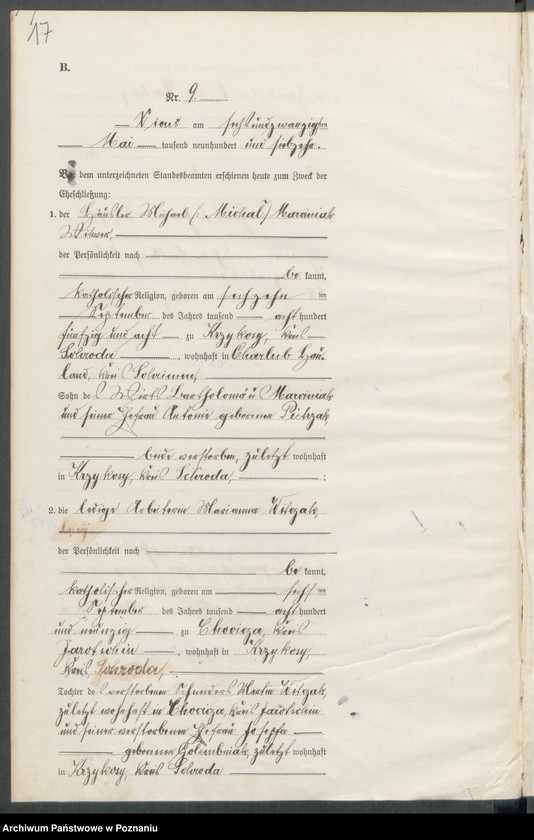 17
B.
Nr. 9.
Xions am sechsundzwanzigsten
Mai tausend neunhundert und siebzehn.
Vor dem unterzeichneten Standesbeamten erschienen heute zum Zweck der
Eheschließung:
1. der Häusler Michael (: Michał) Marciniak
Witwer,
der Persönlichkeit nach
be kannt,
katholischer Religion, geboren am sechzehn ten
September des Jahres tausend acht hundert
fünfzig und acht zu Krzykosy, Kreis
Schroda, wohnhaft in Charlub Hau-
land, Kreis Schrimm,
Sohn des Wirts Bartholomäus Marciniak
und seiner Ehefrau Antonie geborenen Pietrzak,
beide verstorben, zuletzt wohnhaft
in Krzykosy, Kreis Schroda, ;
2. die ledige Arbeiterin Marianna Witczak,
der Persönlichkeit nach
be kannt,
katholischer Religion, geboren am sechs ten
September des Jahres tausend acht hundert
und neunzig zu Chocicza, Kreis
Jarotschin, wohnhaft in Krzykosy,
Kreis Schroda,
Tochter des verstorbenen Martin Witczak,
zuletzt wohnhaft in Chocicza, Kreis Jarotschin
und seiner verstorbenen Ehefrau Josepha
geborene Golembniak, zuletzt wohnhaft
in Krzykosy, Kreis Schroda
Archiwum Państwowe w Poznaniu